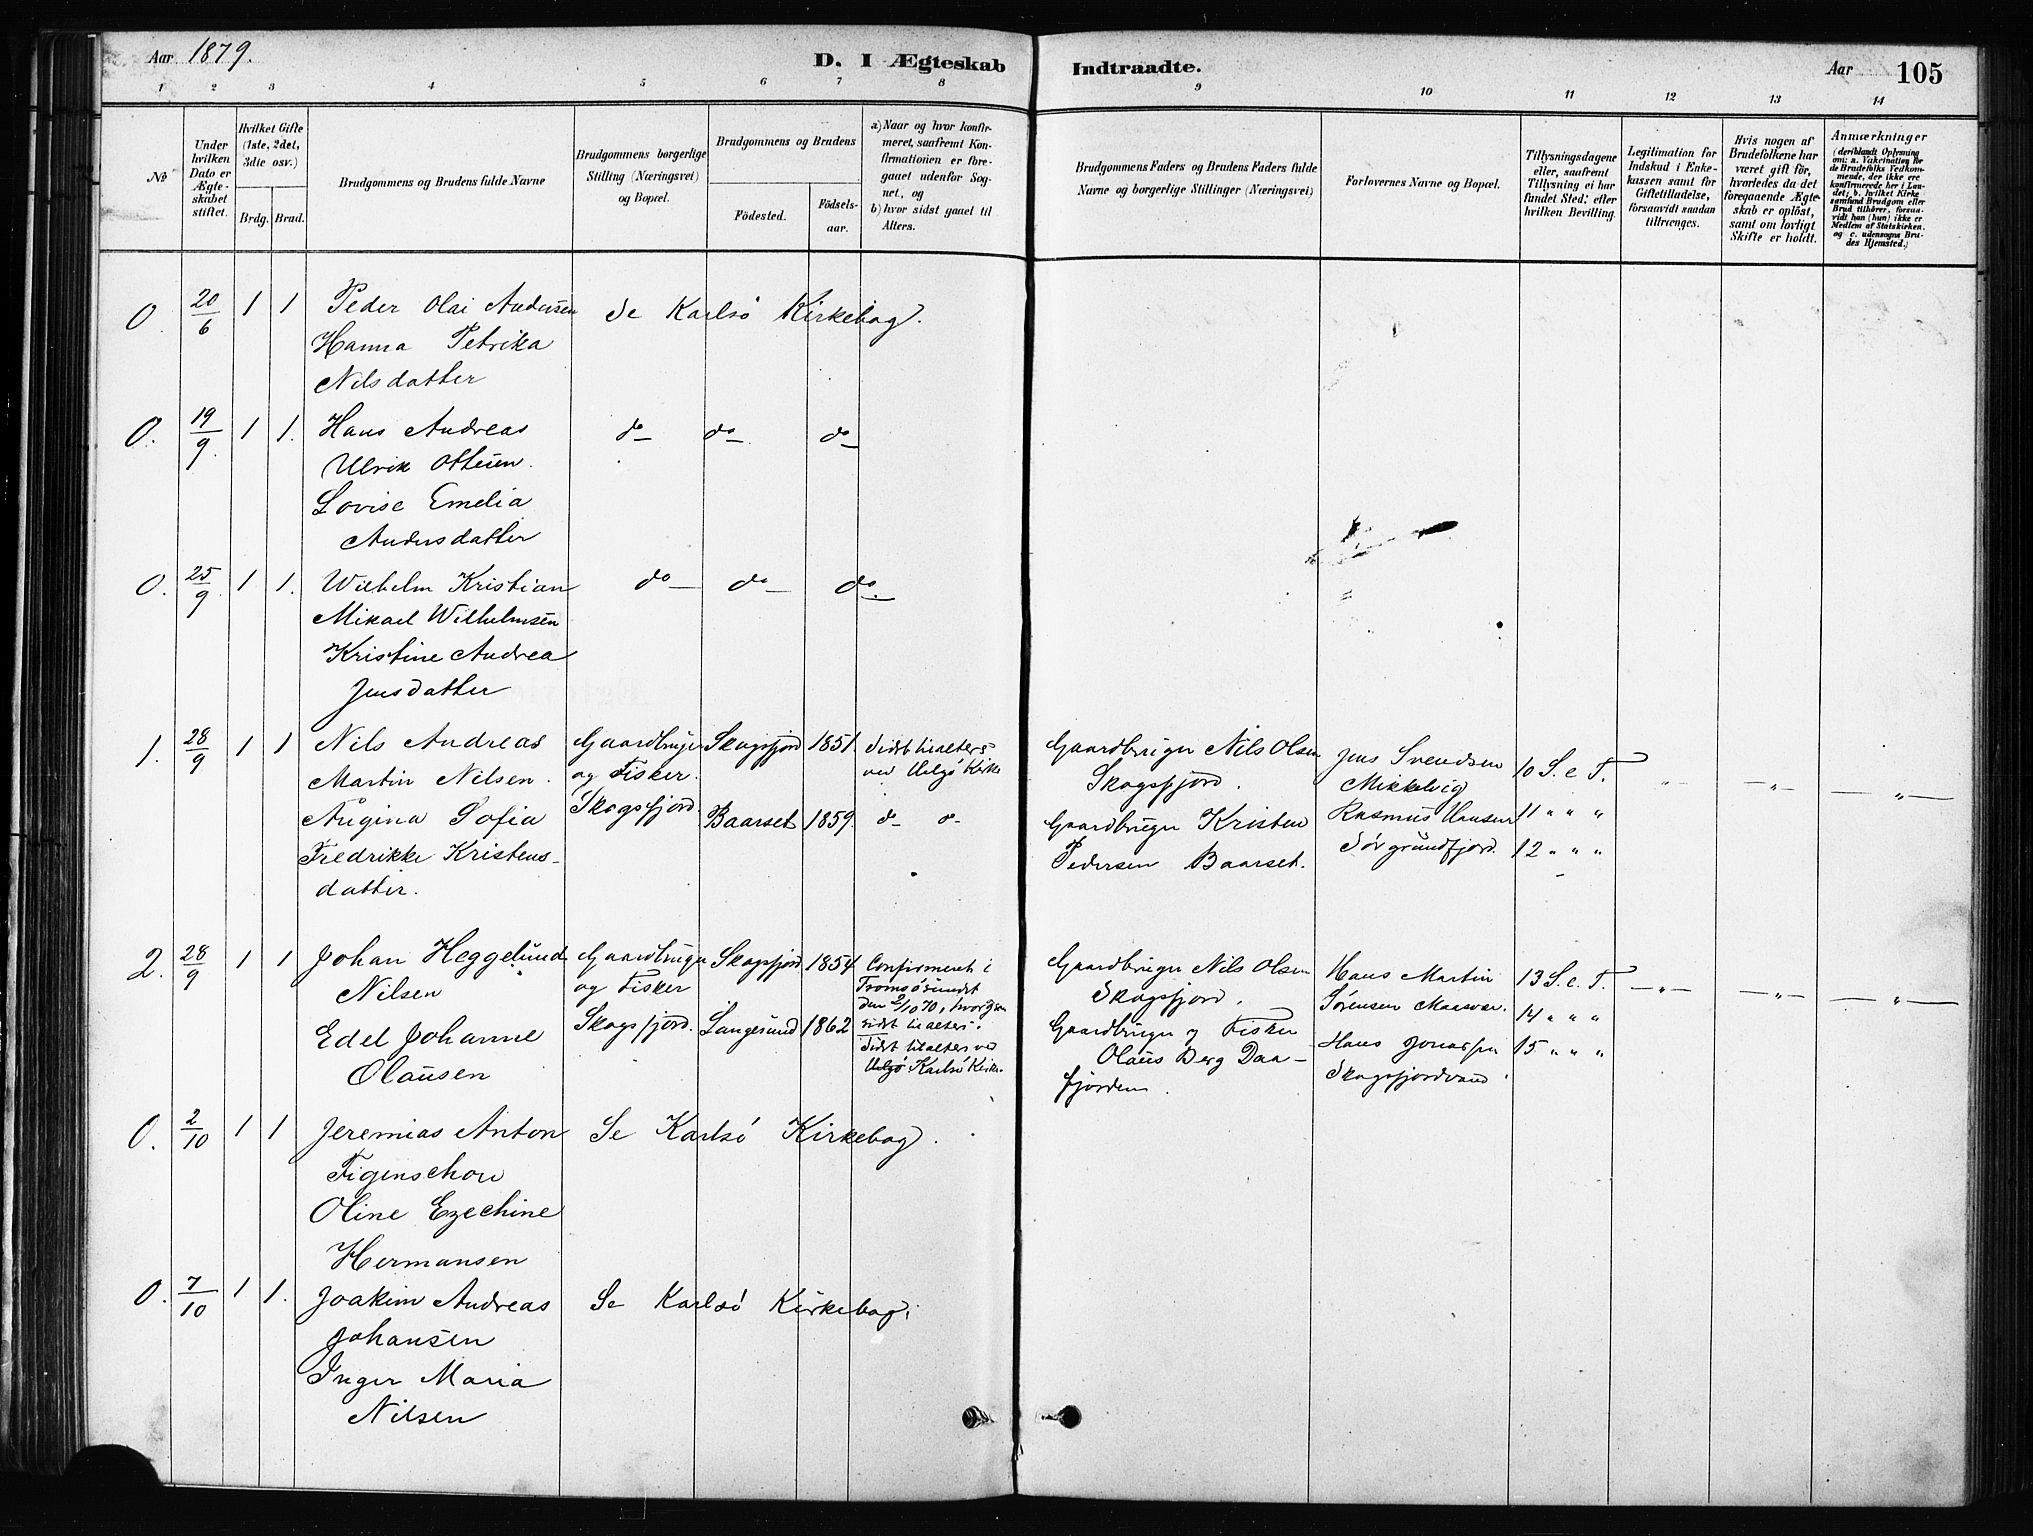 Aar 1879.
D. I Ægteskab Indtraadte.
Aar 105
1 2 3 4 5 6 7 8 9 10 11 12 13 14
No
Under hvilken Dato er Ægteskabet stiftet.
Hvilket Gifte (1ste, 2det, 3die osv.)
Brdg. Brud.
Brudgommens og Brudens fulde Navne
Brudgommens borgerlige Stilling (Næringsvei) og Bopæl.
Brudgommens og Brudens
Födested.
Födsels-aar.
a) Naar og hvor konfir-
meret, saafremt Kon-
firmationen er fore-
gaaet udenfor Sog-
net, og
b) hvor sidst gaaet til
Alters.
Brudgommens Faders og Brudens Faders fulde
Navne og borgerlige Stillinger (Næringsvei)
Forlovernes Navne og Bopæl.
Tillysningsdagene
eller, saafremt
Tillysning ei har
fundet Sted: efter
hvilken Bevilling.
Legitimation for
Indskud i Enke-
kassen samt for
Giftetilladelse,
forsaavidt saadan
tiltrænges.
Hvis nogen af
Brudefolkene har
været gift før,
hvorledes da det
foregaaende Ægte-
skab er oplöst,
samt om lovligt
Skifte er holdt.
Anmærkninger
(deriblandt Oplysning
om: a. Vakcination for
de Brudefolks Vedkom-
mende, der ikke ere
konfirmerede her i Lan-
det; b. hvilket Kirke-
samfund Brudgom eller
Brud tilhörer, forsaa-
vidt han (hun) ikke er
Medlem af Statskirken,
og c. udensogns Bru-
des Hjemsted.)
0. 20/6 1 1 Peder Olai Andersen Se Karlsö Kirkebog.
Hanna Petrika
Nilsdatter
0. 19/9. 1 1. Hans Andreas do do do
Ulrik Ottesen.
Lovise Emelia
Andersdatter
0. 25/9 1 1. Wilhelm Kristian do do do.
Mikael Wilhelmsen
Kristine Andrea
Jensdatter
1. 28/9 1 1 Nils Andreas Gaardbruger Skogsfjord 1851. Sidst tilalters
Martin Nilsen. og Fisker. ved Helgö Kirke
Augina Sofia Skogsfjord. Baarset 1859. do do
Fredrikke Kristens-
datter.
Gaardbruger Nils Olsen
Skogsfjord.
Gaardbruger Kristen
Pedersen Baarset.
Jens Svendsen
Mikkelvig
Rasmus Hansen
Sörgrundfjord.
10 S. e. T. " " "
11 " " "
12 " " "
2. 28/9 1 1 Johan Heggelund Gaardbruger Skogsfjord 1854 Confirmeret i
Nilsen og Fisker Tromsösundet
Skogsfjord. den 2/10 70, hvor igjen
Edel Johanne Langesund 1862 sidst tilalters.
Olausen Sidst tilalters ved
Helgö Karlsö Kirke.
Gaardbruger Nils Olsen
Skogsfjord.
Gaardbruger og Fisker
Olaus Berg Daa-
fjorden.
Hans Martin
Sörensen Maasvær.
Hans Jonassen
Skogsfjordvand.
13 S. e. T. " " "
14 " " "
15 " " "
0. 2/10 1 1 Jeremias Anton Se Karlsö Kirkebog.
Figenschou
Oline Ezechine
Hermansen
0. 7/10 1 1. Joakim Andreas Se Karlsö Kirkebog.
Johansen
Inger Maria
Nilsen